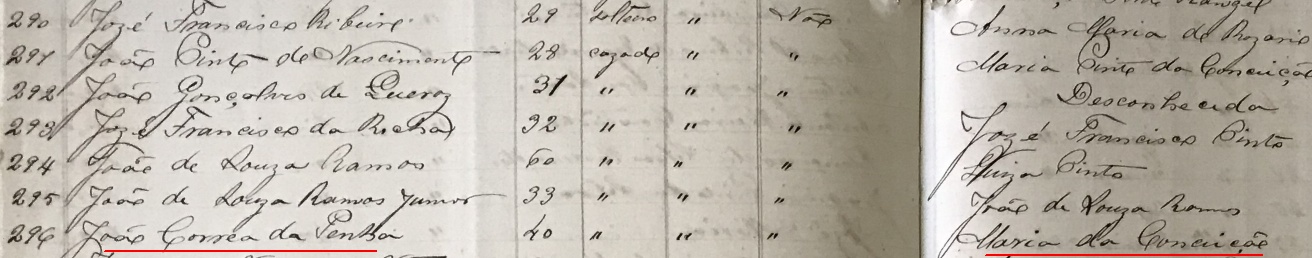 290 Jozé Francisco Ribeiro 29 solteiro " Não
Anna Maria do Rozario
291 João Pinto do Nascimento 28 cazado " "
Maria Pinto da Conceição
292 João Gonçalves de Queroz 31 " " "
Desconhecida
293 Jozé Francisco da Rocha 32 " " "
Jozé Francisco Pinto
294 João de Souza Ramos 60 " " "
Luiza Pinto
295 João de Souza Ramos Junior 33 " " "
João de Souza Ramos
296 João Correa da Penha 40 " " "
Maria da Conceição